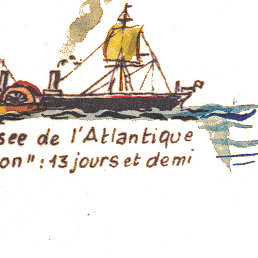 sée de l'Atlantique
on": 13 jours et demi